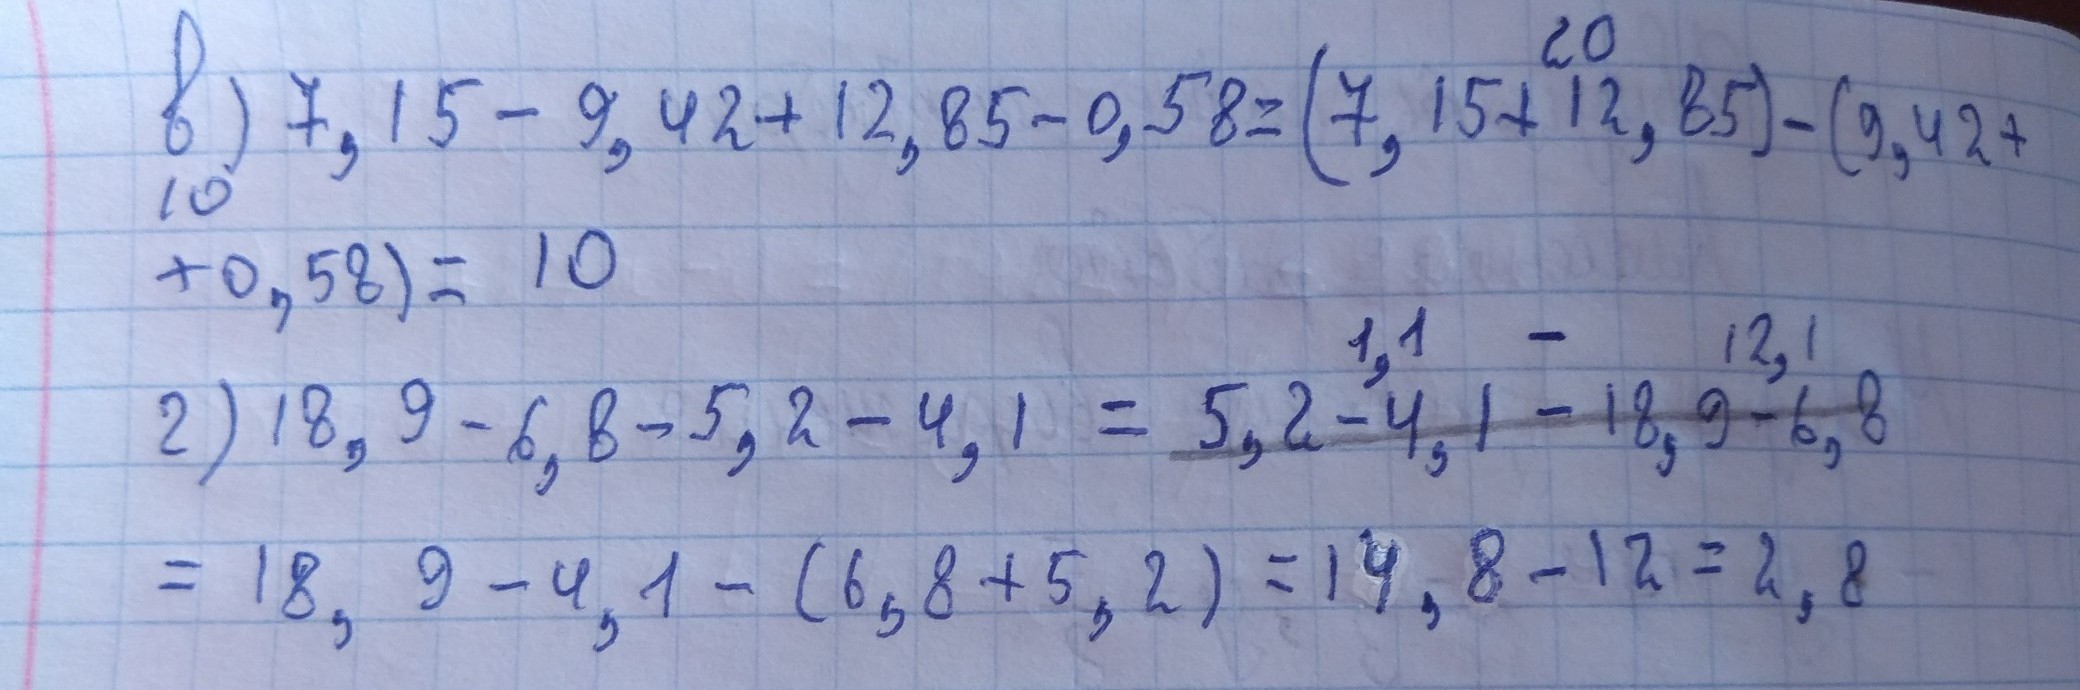 20
в) 7,15 - 9,42 + 12,85 - 0,58 = (7,15 + 12,85) - (9,42 +
10
+ 0,58) = 10
1,1 - 12,1
г) 18,9 - 6,8 - 5,2 - 4,1 = 5,2 - 4,1 - 18,9 - 6,8
= 18,9 - 4,1 - (6,8 + 5,2) = 14,8 - 12 = 2,8